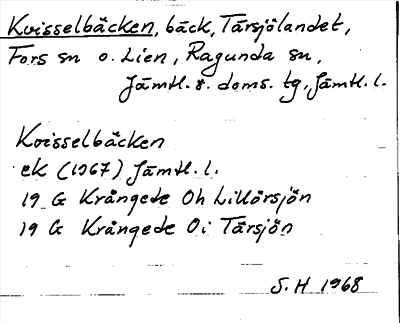 Kvisselbäcken, bäck, Tärsjölandet,
Fors sn o. Lien, Ragunda sn,
Jämtl. ö. doms. tg, Jämtl. l.
Kvisselbäcken
ek (1967) Jämtl. l.
19 G Krångede Oh Lillörsjön
19 G Krångede Oi Tärsjön
S.H 1968